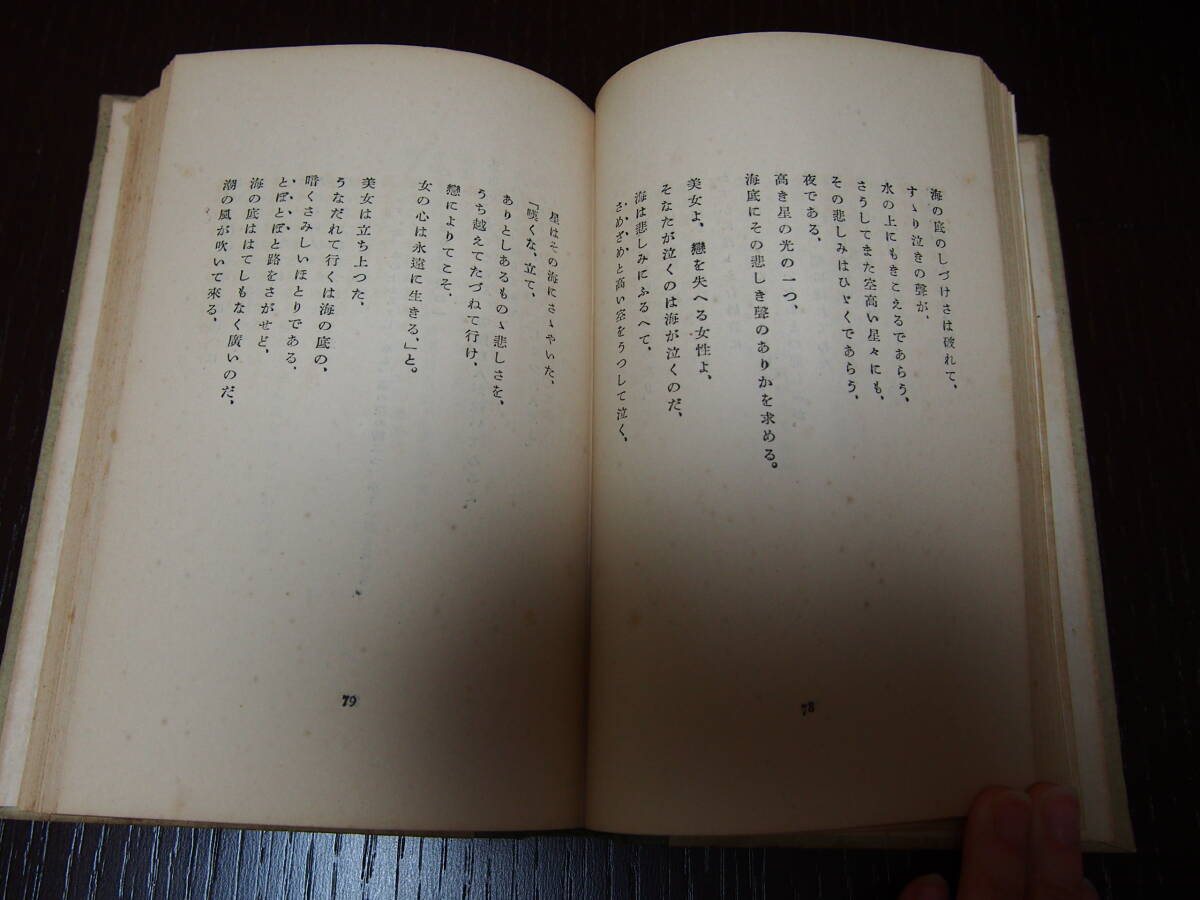 海の底のしづけさは破れて、
すゝり泣きの聲が、
水の上にもきこえるであらう、
さうしてまた空高い星々にも、
その悲しみはひゞくであらう、
夜である、
高き星の光の一つ、
海底にその悲しき聲のありかを求める。
美女よ、戀を失へる女性よ、
そなたが泣くのは海が泣くのだ、
海は悲しみにふるへて、
さめざめと高い空をうつして泣く、
78
星はその海にさゝやいた、
「嘆くな、立て、
ありとしあるものゝ悲しさを、
うち越えてたづねて行け、
戀によりてこそ、
女の心は永遠に生きる、」と。
美女は立ち上つた、
うなだれて行くは海の底の、
暗くさみしいほとりである、
とぼとぼと路をさがせど、
海の底ははてしもなく廣いのだ、
潮の風が吹いて來る、
79